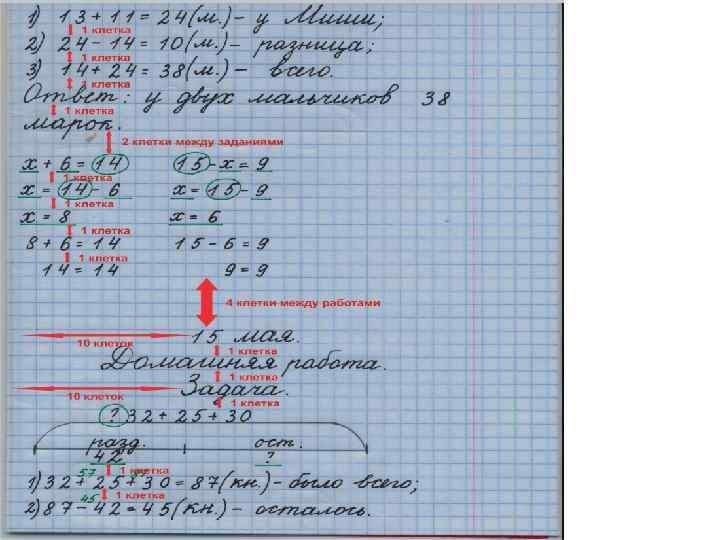 1) 13+11=24(м.)- у Миши;
1 клетка
2) 24-14=10(м.)- разница;
1 клетка
3) 14+24=38(м.)- всего.
1 клетка
Ответ: у двух мальчиков 38
1 клетка
марок.
2 клетки между заданиями
x+6=14 15-x=9
1 клетка
x=14-6 x=15-9
1 клетка
x=8 x=6
1 клетка
8+6=14 15-6=9
1 клетка
14=14 9=9
4 клетки между работами
10 клеток 15 мая.
1 клетка
Домашняя работа.
1 клетка
10 клеток Задача.
1 клетка
? 32+25+30
разд. ост.
42 ?
57 1 клетка
1) 32+25+30=87(кн.)- было всего;
45 1 клетка
2) 87-42=45(кн.)- осталось.